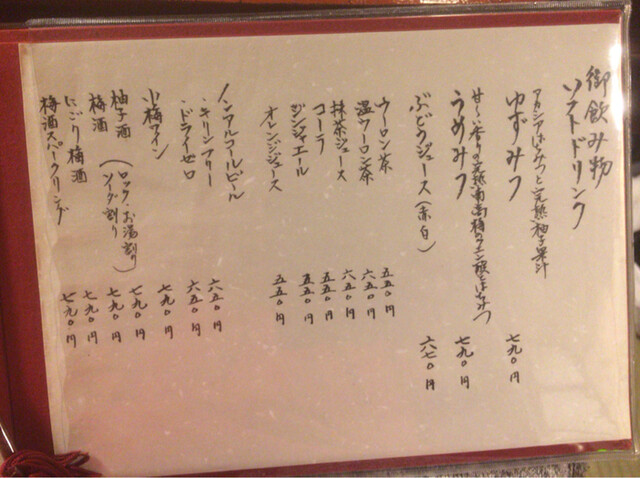 御飲み物
ソフトドリンク
アカシアはちみつと完熟柚子果汁
ゆずみつ 七九〇円
甘〜い香りの完熟南高梅のクエン酸とはちみつ
うめみつ 七九〇円
ぶどうジュース(赤・白) 六七〇円
ウーロン茶 五五〇円
温ウーロン茶 六五〇円
抹茶ジュース 六五〇円
コーラ 五五〇円
ジンジャエール 五五〇円
オレンジジュース 五五〇円
ノンアルコールビール
・キリンフリー 六五〇円
・ドライゼロ 六五〇円
小梅ワイン 七九〇円
柚子酒 (ロック・お湯割り 七九〇円
梅酒 ソーダ割り) 七九〇円
にごり梅酒 七九〇円
梅酒スパークリング 七九〇円